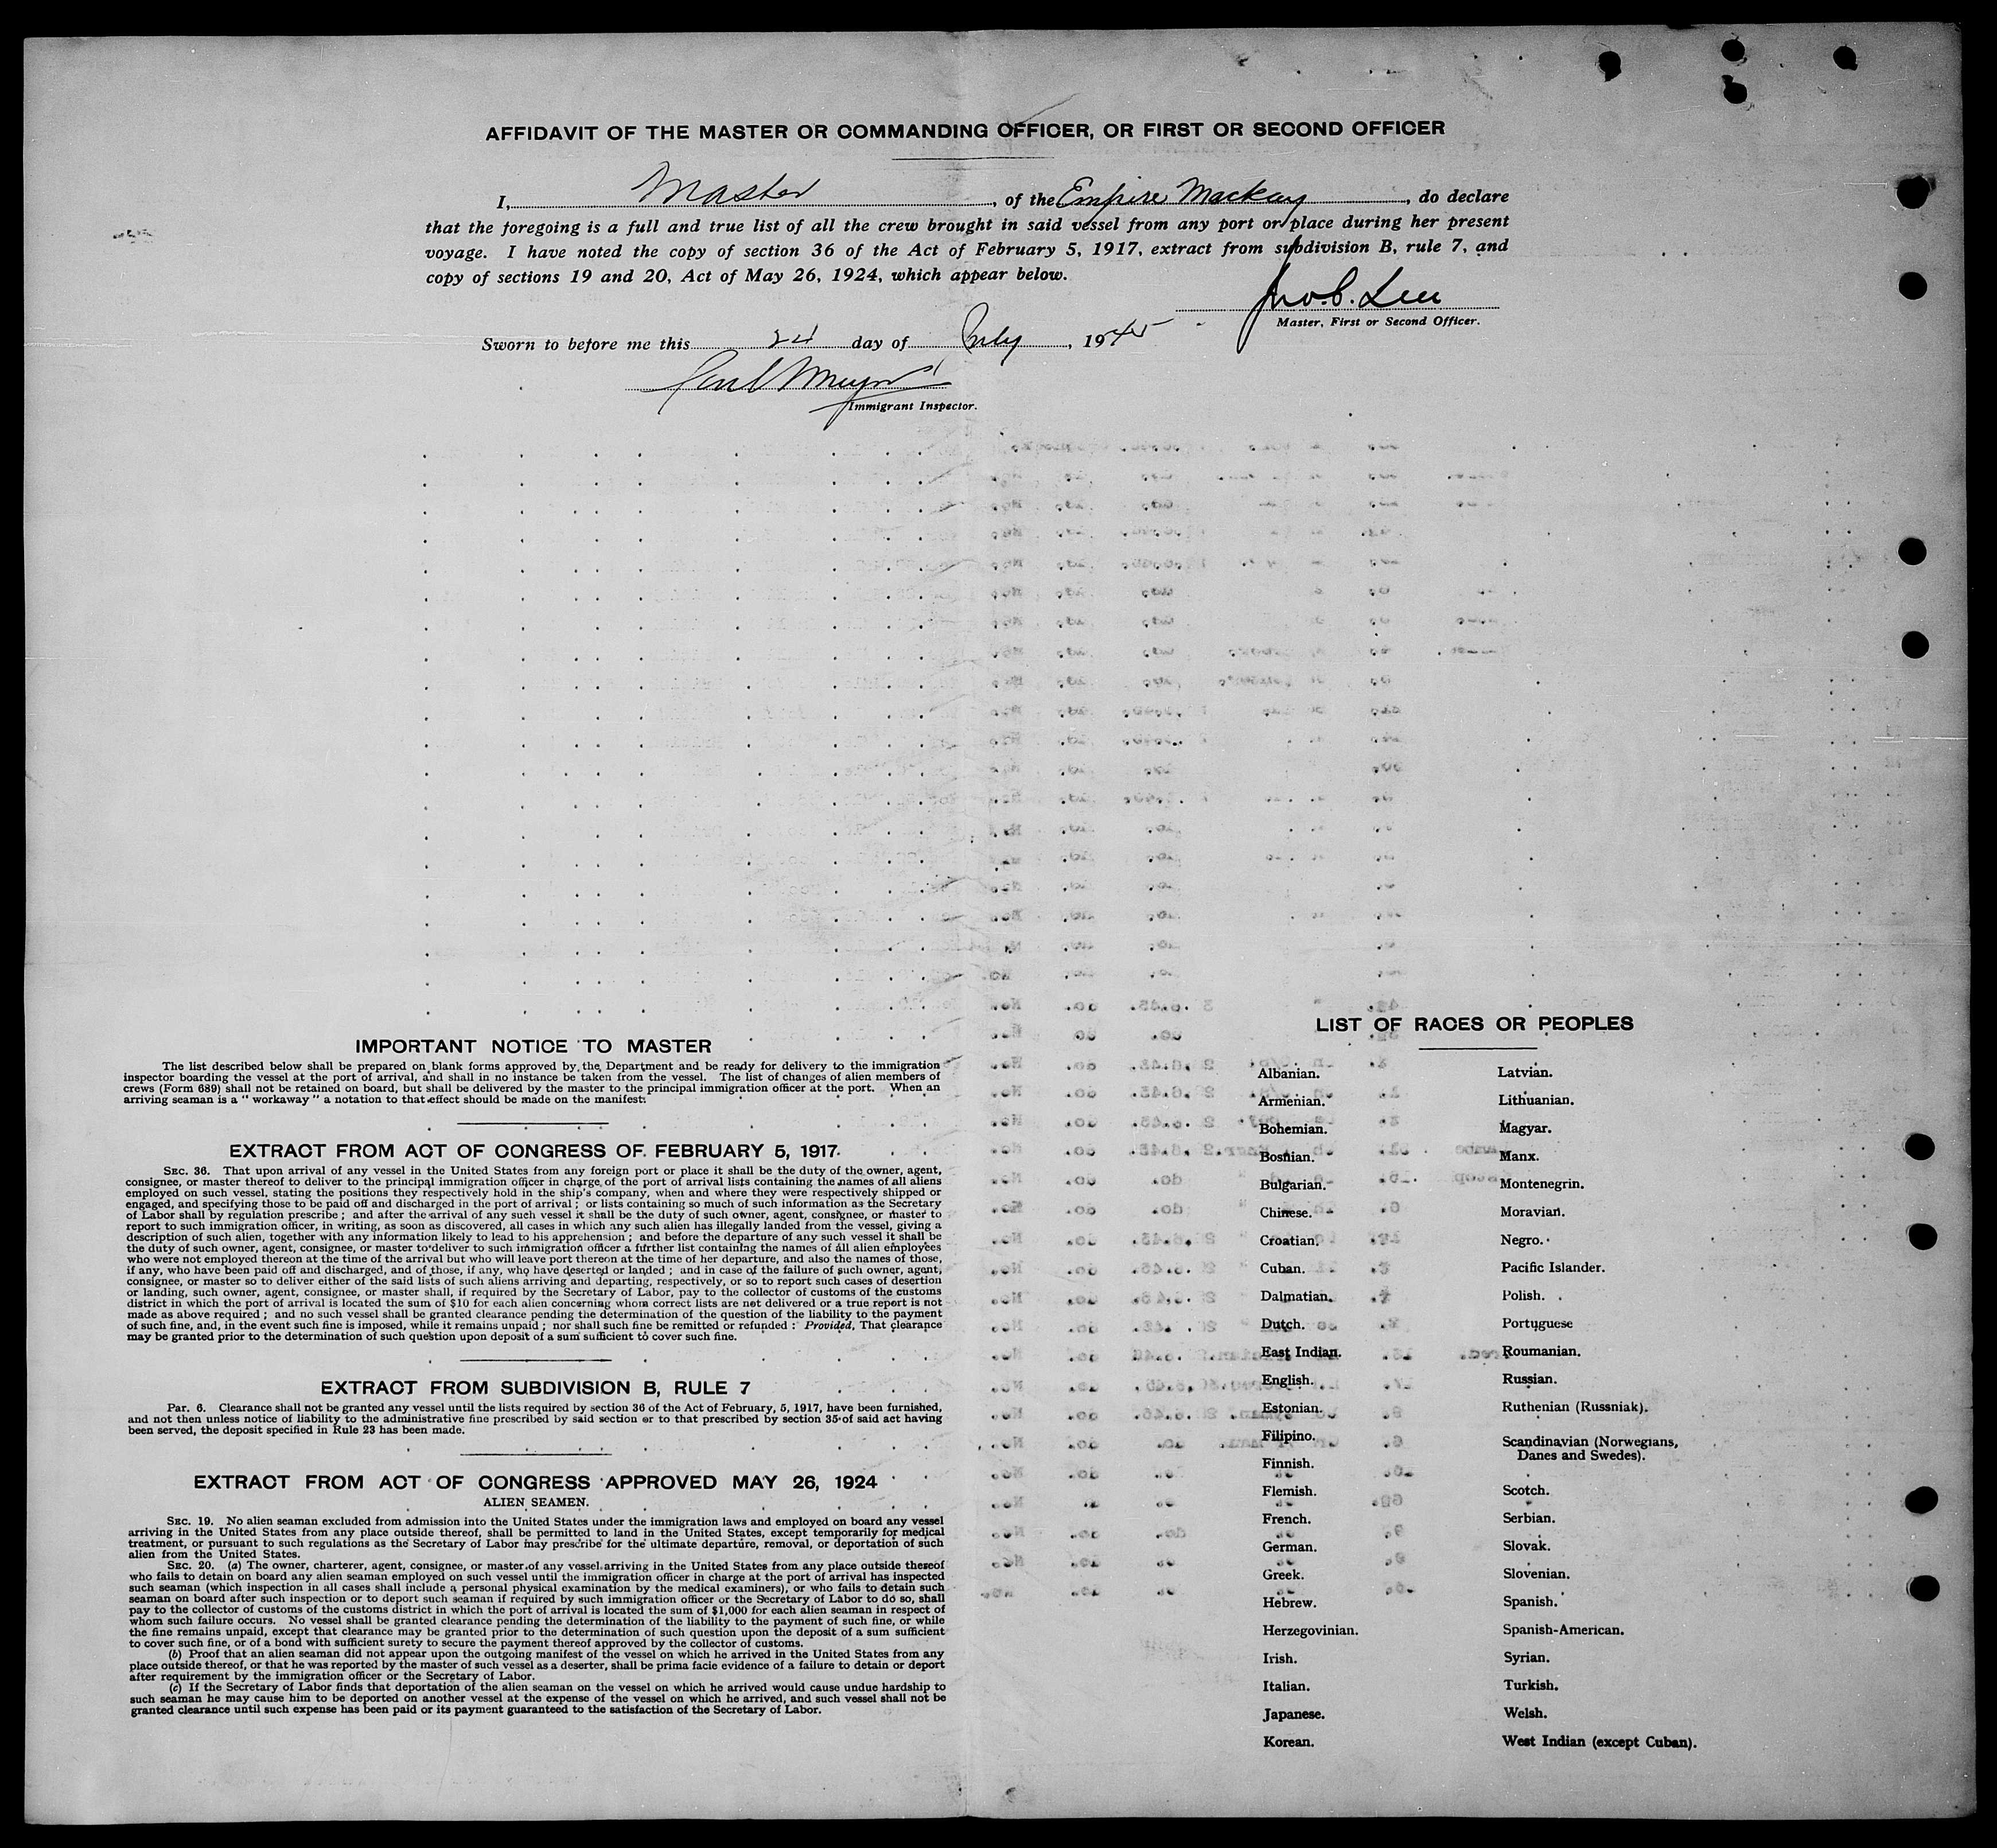 AFFIDAVIT OF THE MASTER OR COMMANDING OFFICER, OR FIRST OR SECOND OFFICER
I, Master, of the Empire Mackay, do declare
that the foregoing is a full and true list of all the crew brought in said vessel from any port or place during her present
voyage. I have noted the copy of section 36 of the Act of February 5, 1917, extract from subdivision B, rule 7, and
copy of sections 19 and 20, Act of May 26, 1924, which appear below.
Master, First or Second Officer.
Sworn to before me this 24 day of July, 1945
Immigrant Inspector.
IMPORTANT NOTICE TO MASTER
The list described below shall be prepared on blank forms approved by the Department and be ready for delivery to the immigration
inspector boarding the vessel at the port of arrival, and shall in no instance be taken from the vessel. The list of changes of alien members of
crews (Form 689) shall not be retained on board, but shall be delivered by the master to the principal immigration officer at the port. When an
arriving seaman is a "workaway" a notation to that effect should be made on the manifest.
EXTRACT FROM ACT OF CONGRESS OF FEBRUARY 5, 1917.
SEC. 36. That upon arrival of any vessel in the United States from any foreign port or place it shall be the duty of the owner, agent,
consignee, or master thereof to deliver to the principal immigration officer in charge of the port of arrival lists containing the names of all aliens
employed on such vessel, stating the positions they respectively hold in the ship's company, when and where they were respectively shipped or
engaged, and specifying those to be paid off and discharged in the port of arrival; or lists containing so much of such information as the Secretary
of Labor shall by regulation prescribe; and after the arrival of any such vessel it shall be the duty of such owner, agent, consignee, or master to
report to such immigration officer, in writing, as soon as discovered, all cases in which any such alien has illegally landed from the vessel, giving a
description of such alien, together with any information likely to lead to his apprehension; and before the departure of any such vessel it shall be
the duty of such owner, agent, consignee, or master to deliver to such immigration officer a further list containing the names of all alien employees
who were not employed thereon at the time of the arrival but who will leave port thereon at the time of her departure, and also the names of those,
if any, who have been paid off and discharged, and of those, if any, who have deserted or landed; and in case of the failure of such owner, agent,
consignee, or master so to deliver either of the said lists of such aliens arriving and departing, respectively, or so to report such cases of desertion
or landing, such owner, agent, consignee, or master shall, if required by the Secretary of Labor, pay to the collector of customs of the customs
district in which the port of arrival is located the sum of $10 for each alien concerning whom correct lists are not delivered or a true report is not
made as above required; and no such vessel shall be granted clearance pending the determination of the question of the liability to the payment
of such fine, and, in the event such fine is imposed, while it remains unpaid; nor shall such fine be remitted or refunded: Provided, That clearance
may be granted prior to the determination of such question upon deposit of a sum sufficient to cover such fine.
EXTRACT FROM SUBDIVISION B, RULE 7
Par. 6. Clearance shall not be granted any vessel until the lists required by section 36 of the Act of February, 5, 1917, have been furnished,
and not then unless notice of liability to the administrative fine prescribed by said section or to that prescribed by section 35 of said act having
been served, the deposit specified in Rule 23 has been made.
EXTRACT FROM ACT OF CONGRESS APPROVED MAY 26, 1924
ALIEN SEAMEN.
SEC. 19. No alien seaman excluded from admission into the United States under the immigration laws and employed on board any vessel
arriving in the United States from any place outside thereof, shall be permitted to land in the United States, except temporarily for medical
treatment, or pursuant to such regulations as the Secretary of Labor may prescribe for the ultimate departure, removal, or deportation of such
alien from the United States.
SEC. 20. (a) The owner, charterer, agent, consignee, or master of any vessel arriving in the United States from any place outside thereof
who fails to detain on board any alien seaman employed on such vessel until the immigration officer in charge at the port of arrival has inspected
such seaman (which inspection in all cases shall include a personal physical examination by the medical examiners), or who fails to detain such
seaman on board after such inspection or to deport such seaman if required by such immigration officer or the Secretary of Labor to do so, shall
pay to the collector of customs of the customs district in which the port of arrival is located the sum of $1,000 for each alien seaman in respect of
whom such failure occurs. No vessel shall be granted clearance pending the determination of the liability to the payment of such fine, or while
the fine remains unpaid, except that clearance may be granted prior to the determination of such question upon the deposit of a sum sufficient
to cover such fine, or of a bond with sufficient surety to secure the payment thereof approved by the collector of customs.
(b) Proof that an alien seaman did not appear upon the outgoing manifest of the vessel on which he arrived in the United States from any
place outside thereof, or that he was reported by the master of such vessel as a deserter, shall be prima facie evidence of a failure to detain or deport
after requirement by the immigration officer or the Secretary of Labor.
(c) If the Secretary of Labor finds that deportation of the alien seaman on the vessel on which he arrived would cause undue hardship to
such seaman he may cause him to be deported on another vessel at the expense of the vessel on which he arrived, and such vessel shall not be
granted clearance until such expense has been paid or its payment guaranteed to the satisfaction of the Secretary of Labor.
LIST OF RACES OR PEOPLES
Albanian.
Armenian.
Bohemian.
Bosnian.
Bulgarian.
Chinese.
Croatian.
Cuban.
Dalmatian.
Dutch.
East Indian.
English.
Estonian.
Filipino.
Finnish.
Flemish.
French.
German.
Greek.
Hebrew.
Herzegovinian.
Irish.
Italian.
Japanese.
Korean.
Latvian.
Lithuanian.
Magyar.
Manx.
Montenegrin.
Moravian.
Negro.
Pacific Islander.
Polish.
Portuguese
Roumanian.
Russian.
Ruthenian (Russniak).
Scandinavian (Norwegians,
Danes and Swedes).
Scotch.
Serbian.
Slovak.
Slovenian.
Spanish.
Spanish-American.
Syrian.
Turkish.
Welsh.
West Indian (except Cuban).